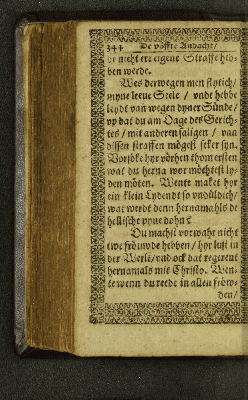 344 De vöffte Andacht/
de nicht ere eigene Straffe heb-
ben werde.
Wes derwegen men flytich/
myne leeue Seele / vnde hebbe
leydt van wegen dyner Sünde/
vp dat du am Dage des Gerich-
tes / mit anderen saligen / van
dissen straffen mögest seker syn.
Vorsöke hyr vörhen thom ersten
wat du herna wor möchtest ly-
den möten. Wente maket hyr
ein klein Lydendt so vnduldich/
wat werdt denn hernamahls de
hellische pyne dohn?
Du machst vorwahr nicht
twe fröuwde hebben / hyr lust in
der Werlt/vnd ock dat regerent
hernamals mit Christo. Wen-
te wenn du rede in allen fröw-
den/